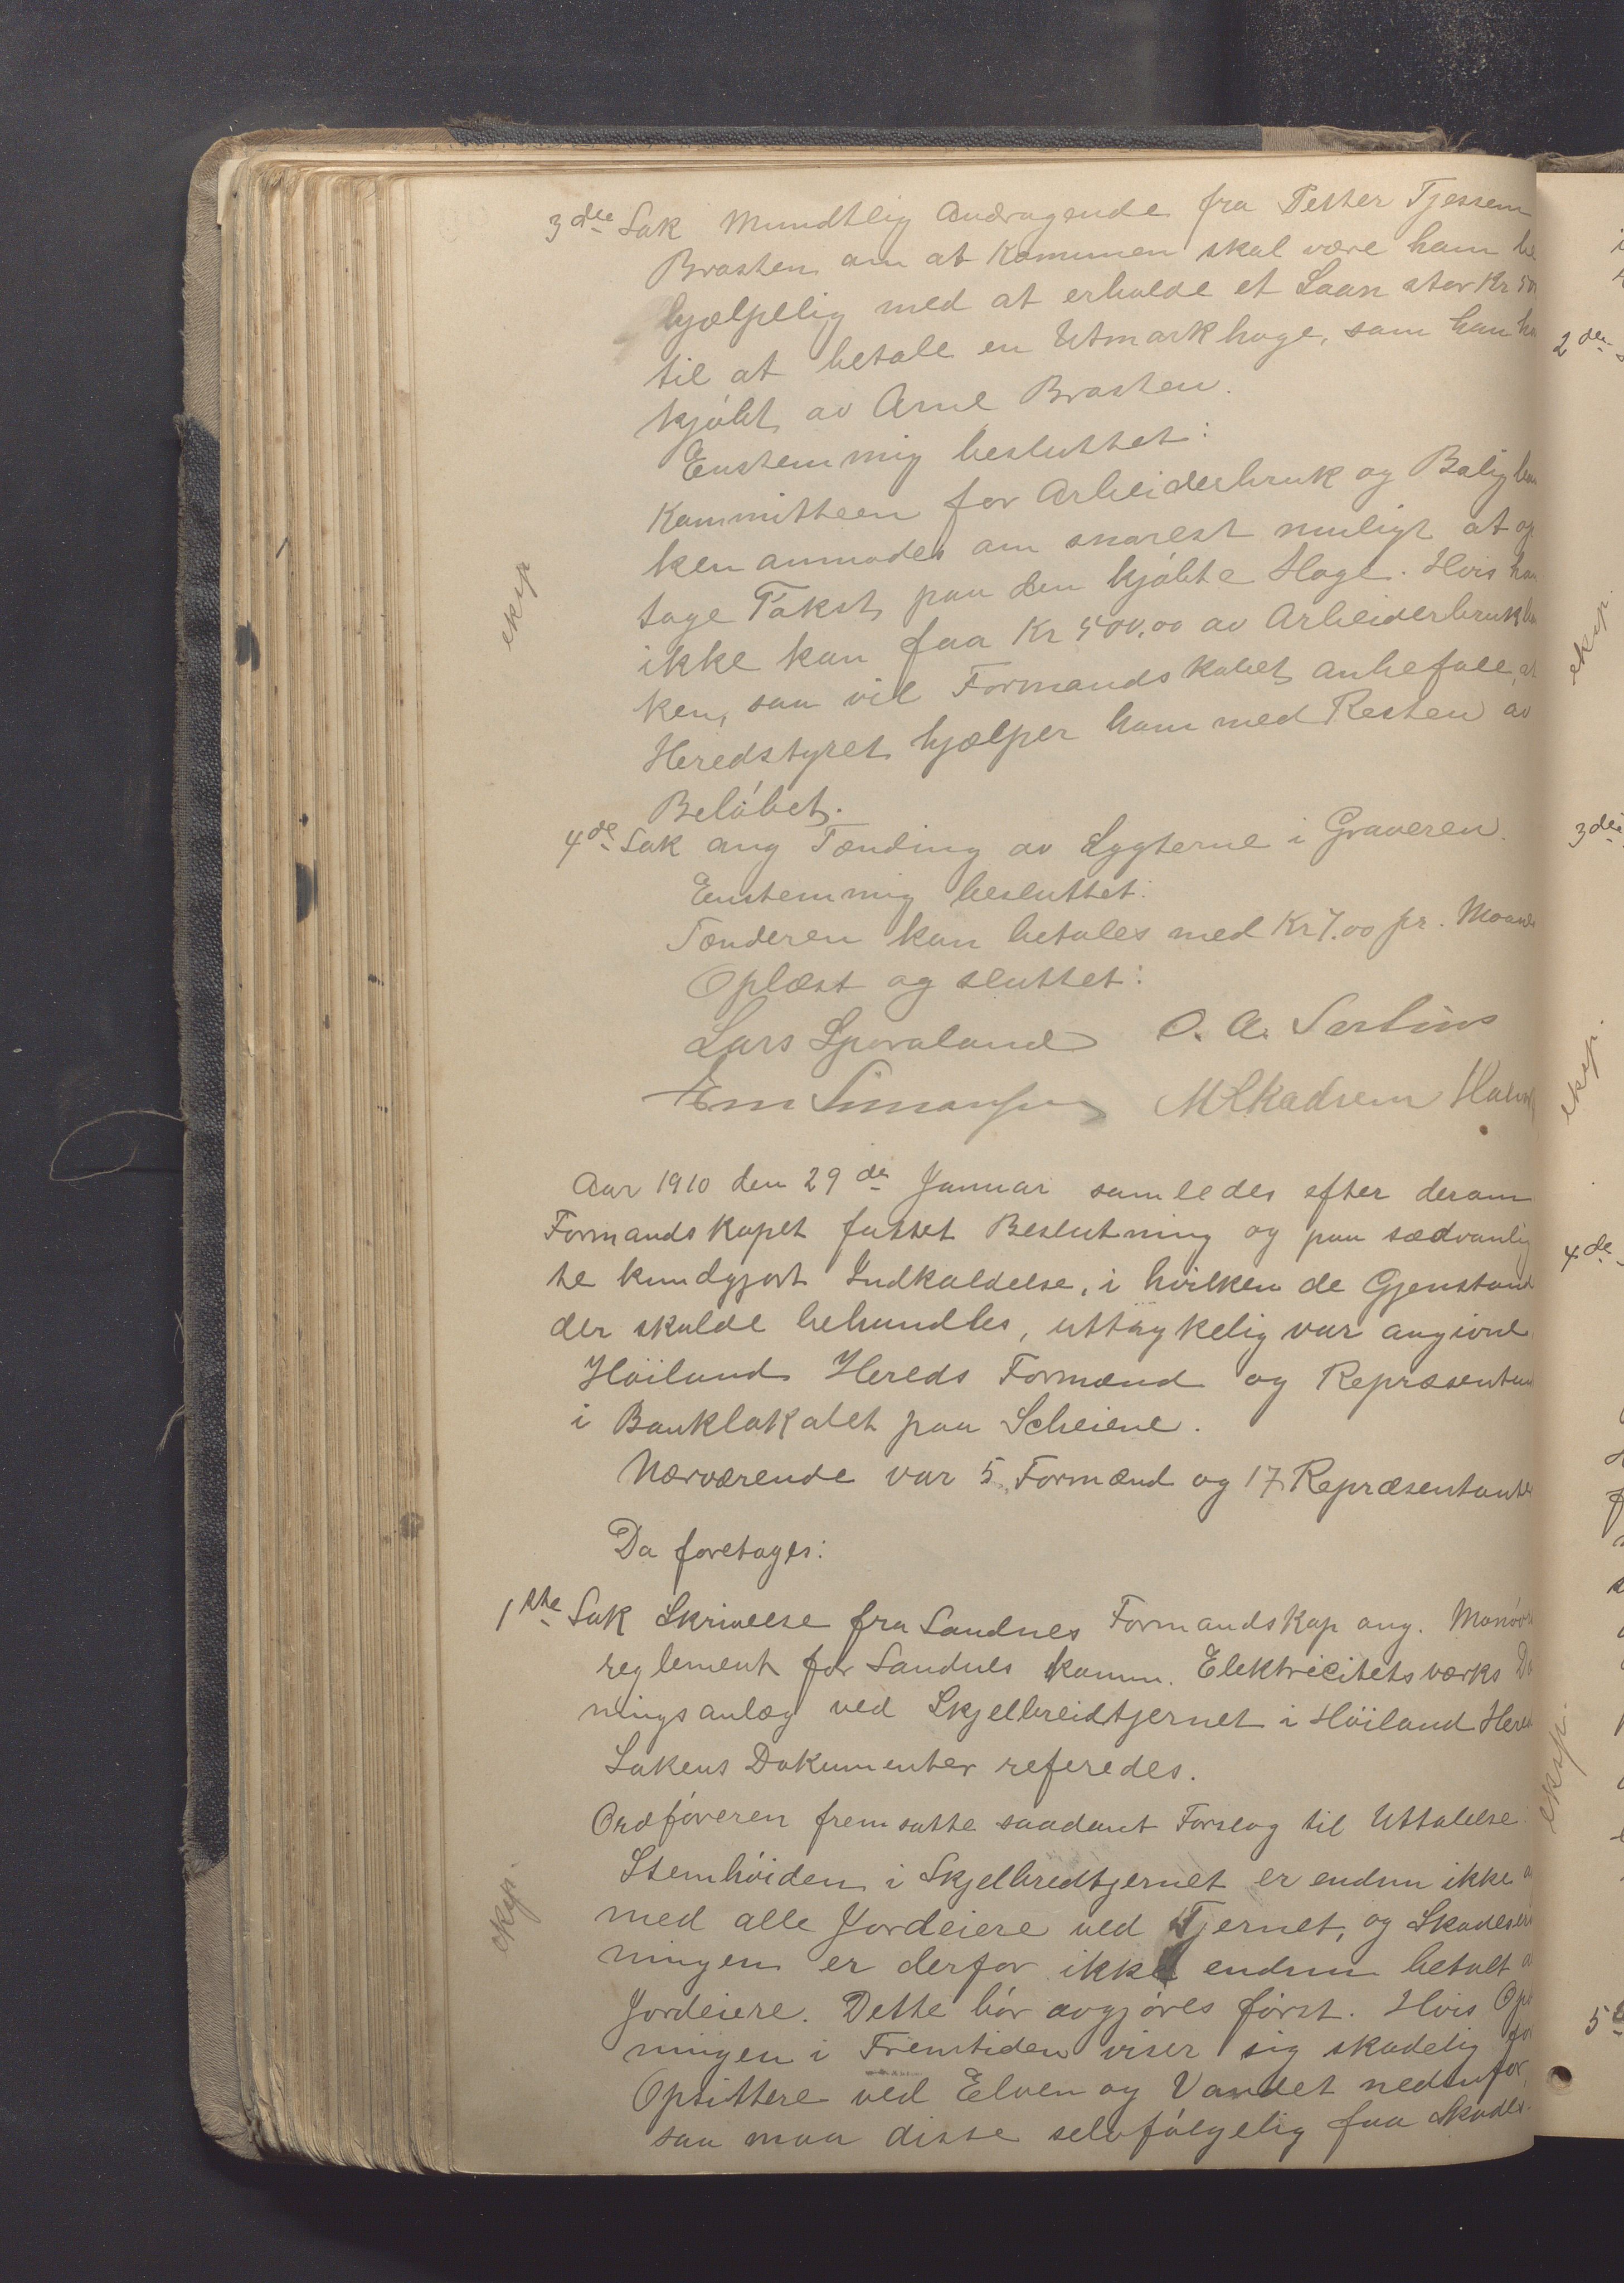 3die Sak Mundtlig Andragende fra Petter Tjessem
Brasten om at Komunen skal være ham be
hjælpelig med at erholde et Laan stor Kr 500
til at betale en Utmarkhage, som han ha
kjøbt av Arne Brasten.
Enstemmig besluttet:
Kommitteen for Arbeiderbruk og Boligban
ken anmodes om snarest muligt at op
tage Takst paa den kjøbte Hage. Hvis han
ikke kan faa Kr 500,00 av Arbeiderbrukban
ken, saa vil Formandskabet anbefale, at
Heredstyret hjælper ham med Resten av
Beløbet.
eksp
4de Sak ang Tænding av Lygterne i Graveren.
Enstemmig besluttet:
Tænderen kan betales med Kr 7.00 pr. Maaned
Oplæst og sluttet:
Lars Sporaland O. A. Serlius
Em Simonsen M Skadsem
Aar 1910 den 29de Januar samledes efter derom
Formandskapet fattet Beslutning og paa sædvanlig
te kundgjort Indkaldelse, i hvilken de Gjenstand
der skulde behandles, uttrykelig var angivne
Höiland Hereds Formænd og Repræsentan
i Banklokalet paa Scheiene.
Nærværende var 5 Formænd og 17 Repræsentanter
Da foretages:
1ste Sak Skrivelse fra Sandnes Formandskap ang. Manøvre
reglement for Sandnes komm. Elektricitetsværks Dæ
ningsanlæg ved Skjelbreidtjernet i Höiland Hered
Sakens Dokumenter referedes.
Ordføreren fremsatte saadant Forslag til Uttalelse:
Stemhøiden i Skjelbredtjernet er endnu ikke a
med alle Jordeiere ved Tjernet, og Skadeser
ningen er derfor ikke endnu betalt a
Jordeiere. Dette bör avgjøres først. Hvis Op
ningen i Fremtiden viser sig skadelig for
Opsittere ved Elven og Vandet nedenfor,
saa maa disse selvfølgelig faa Skades
eksp.
2den
3die
4de
5
eksp.
eksp.
eksp.